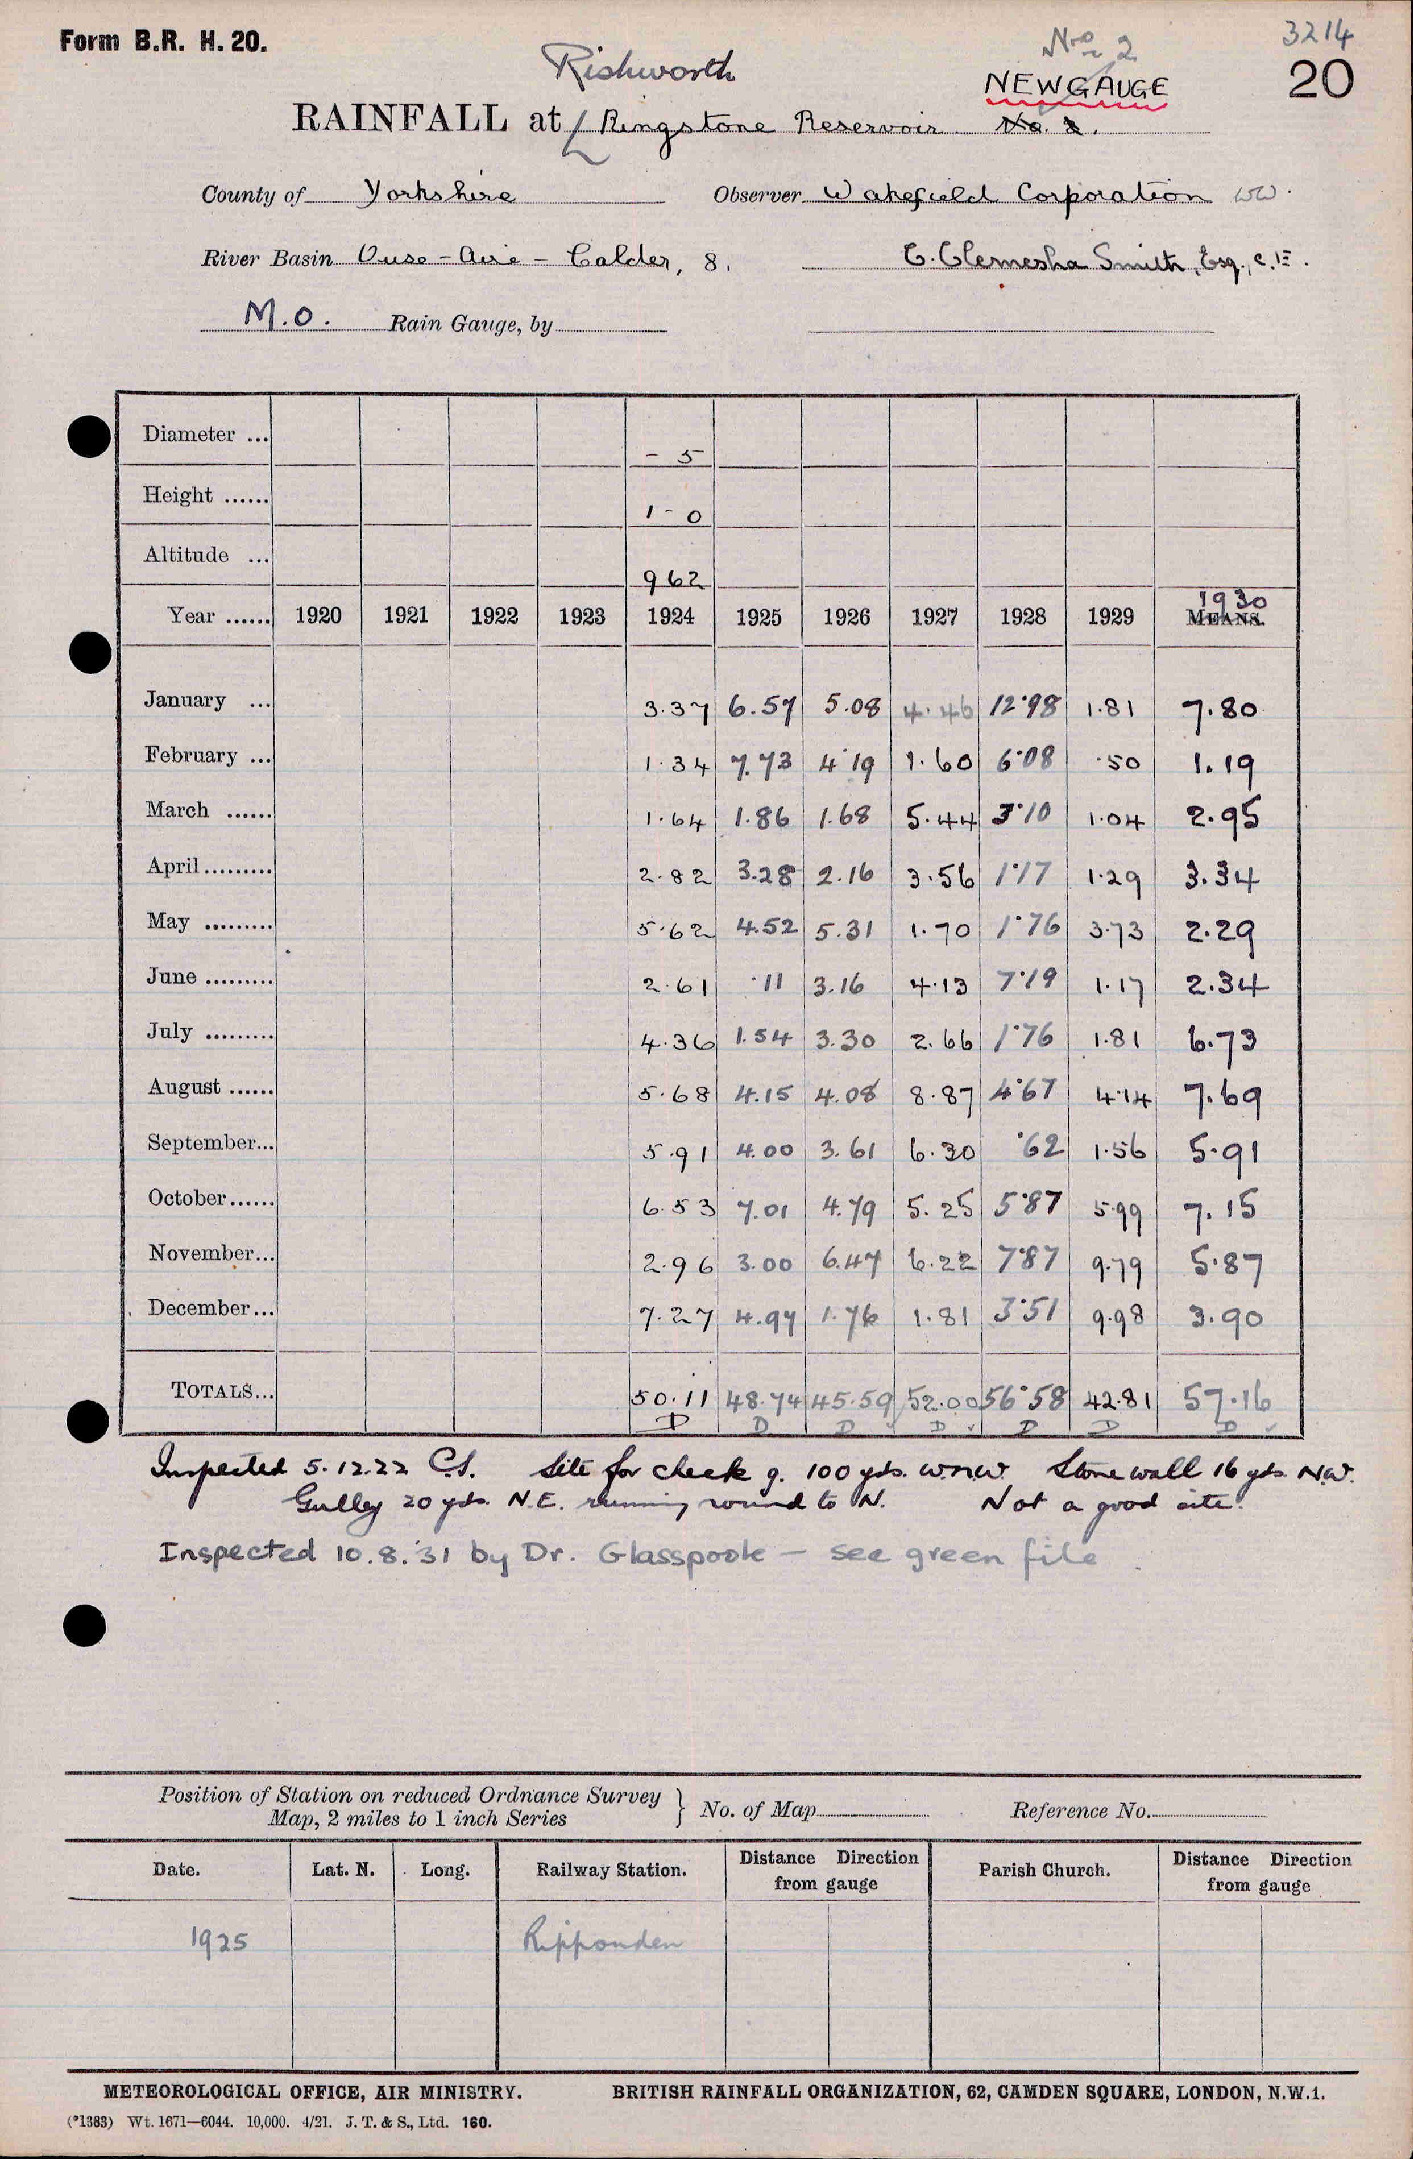 Form B.R. H. 20.
No 2
3214
Rishworth
NEW GAUGE
20
RAINFALL at Ringstone Reservoir No. 2.
County of Yorkshire Observer Wakefield Corporation WW.
River Basin Ouse - Aire - Calder, 8. C. Clemesha Smith, Esq., C.E.
M.O. Rain Gauge, by
Diameter ... - 5
Height ...... 1 - 0
Altitude ... 962
Year ...... 1920 1921 1922 1923 1924 1925 1926 1927 1928 1929 1930 MEANS.
January ... 3.37 6.57 5.08 4.46 12.98 1.81 7.80
February ... 1.34 7.73 4.19 1.60 6.08 .50 1.19
March ...... 1.64 1.86 1.68 5.44 3.10 1.04 2.95
April ......... 2.82 3.28 2.16 3.56 1.17 1.29 3.34
May ......... 5.62 4.52 5.31 1.70 1.76 3.73 2.29
June ......... 2.61 .11 3.16 4.13 7.19 1.17 2.34
July ......... 4.36 1.54 3.30 2.66 1.76 1.81 6.73
August ...... 5.68 4.15 4.08 8.87 4.67 4.14 7.69
September... 5.91 4.00 3.61 6.30 .62 1.56 5.91
October...... 6.53 7.01 4.79 5.25 5.87 5.99 7.15
November... 2.96 3.00 6.47 6.22 7.87 9.79 5.87
December... 7.27 4.97 1.76 1.81 3.51 9.98 3.90
TOTALS... 50.11 48.74 45.59 52.00 56.58 42.81 57.16
D D D D D D D
Inspected 5.12.22 C.S. Site for check g. 100 yds. W.N.W. Stone wall 16 yds. N.W.
Gulley 20 yds. N.E. running round to N. Not a good site.
Inspected 10.8.'31 by Dr. Glasspoole - see green file
Position of Station on reduced Ordnance Survey
Map, 2 miles to 1 inch Series } No. of Map Reference No.
Date. Lat. N. Long. Railway Station. Distance Direction from gauge Parish Church. Distance Direction from gauge
1925 Ripponden
METEOROLOGICAL OFFICE, AIR MINISTRY. BRITISH RAINFALL ORGANIZATION, 62, CAMDEN SQUARE, LONDON, N.W.1.
(*1383) Wt. 1671—6044. 10,000. 4/21. J. T. & S., Ltd. 160.